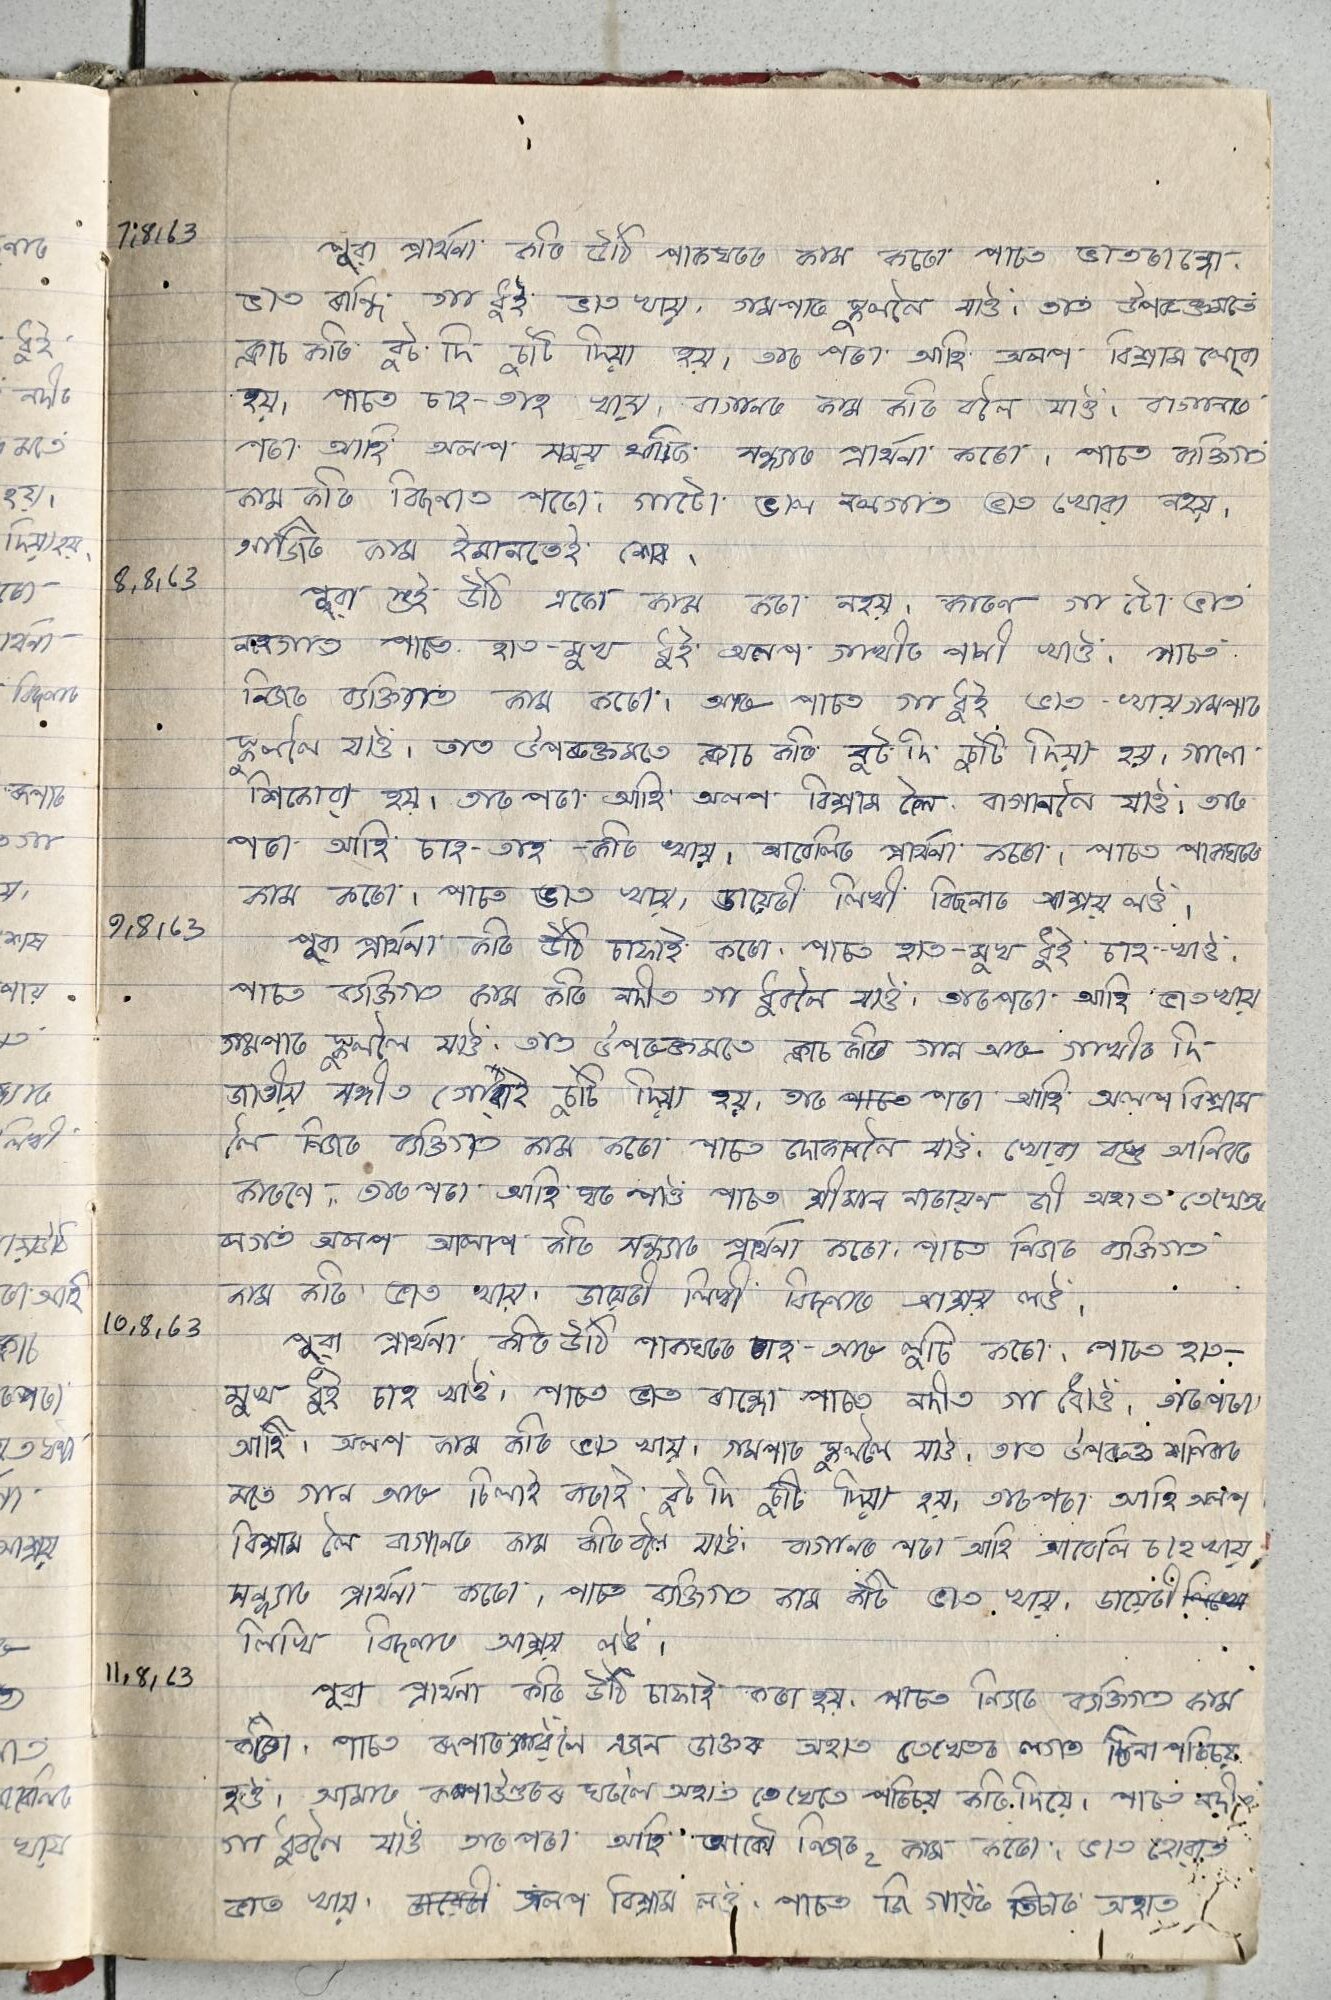 7,8,63
পুৱা প্ৰাৰ্থনা কৰি উঠি পাকঘৰত কাম কৰো পাচত ভাতৰান্ধো.
ভাত ৰান্ধি গা ধুই ভাত খায়, গমপাত স্কুললৈ যাওঁ, তাত উপৰুক্তমতে
ক্লাচ কৰি বুট দি চুটি দিয়া হয়, তাৰ পৰা আহি অলপ বিশ্ৰাম লোৱা
হয়, পাচত চাহ-তাহ খায়, বাগানত কাম কৰিবলৈ যাওঁ, বাগানৰ
পৰা আহি অলপ সময় থাকি সন্ধ্যাত প্ৰাৰ্থনা কৰো, পাচত ব্যক্তিগত
কাম কৰি বিচনাত পৰো, গাটো ভাল নলগাত ভাত খোৱা নহয়,
আজিৰ কাম ইমানতেই শেষ,
8,8,63
পুৱা শুই উঠি একো কাম কৰা নহয়, কাৰণ গা টো ভাল
নলগাত পাচত হাত-মুখ ধুই অলপ গাখীৰ পৰা খাওঁ, পাচত
নিজৰ ব্যক্তিগত কাম কৰো, আৰু পাচত গা ধুই ভাত খায় গমপাত
স্কুললৈ যাওঁ, তাত উপৰুক্তমতে ক্লাচ কৰি বুট দি চুটি দিয়া হয়, গানো
শিকোৱা হয়, তাৰ পৰা আহি অলপ বিশ্ৰাম লৈ বাগানলৈ যাওঁ, তাৰ
পৰা আহি চাহ-তাহ কৰি খায়, আবেলিৰ প্ৰাৰ্থনা কৰো, পাচত পাকঘৰত
কাম কৰো, পাচত ভাত খায়, ডায়েৰী লিখী বিচনাত আশ্ৰয় লওঁ,
9,8,63
পুৱা প্ৰাৰ্থনা কৰি উঠি চাফাই কৰো, পাচত হাত-মুখ ধুই চাহ-খাওঁ,
পাচত ব্যক্তিগত কাম কৰি নদীত গা ধুবলৈ যাওঁ, তাৰপৰা আহি ভাতখায়
গমপাত স্কুললৈ যাওঁ, তাত উপৰুক্তমতে ক্লাচ কৰি গান আৰু গাখীৰ দি
জাতীয় সঙ্গীত গোৱাই চুটি দিয়া হয়, তাৰ পৰা আহি অলপ বিশ্ৰাম
লৈ নিজৰ ব্যক্তিগত কাম কৰো পাচত দোকানলৈ যাওঁ, খোৱা বস্তু আনিবৰ
কাৰণে, তাৰ পৰা আহি ঘৰ পাওঁ পাচত শ্ৰীমান নাৰায়ন জী অহাত তেখেতৰ
লগত অলপ আলাপ কৰি সন্ধ্যাত প্ৰাৰ্থনা কৰো, পাচত নিজৰ ব্যক্তিগত
কাম কৰি ভাত খায়, ডায়েৰী লিখী বিচনাত আশ্ৰয় লওঁ,
10,8,63
পুৱা প্ৰাৰ্থনা কৰি উঠি পাকঘৰত চাহ-আৰু লুচি কৰো, পাচত হাত-
মুখ ধুই চাহ খাওঁ, পাচত ভাত ৰান্ধো পাচত নদীত গা ধোওঁ, তাৰপৰা
আহি, অলপ কাম কৰি ভাত খায়, গমপাত স্কুললৈ যাওঁ, তাত উপৰুক্ত শনিবাৰ
মতে গান আৰু চিলাই কৰাই বুট দি চুটি দিয়া হয়, তাৰপৰা আহি অলপ
বিশ্ৰাম লৈ বাগানত কাম কৰিবলৈ যাওঁ, বাগানৰ পৰা আহি আবেলি চাহ খায়,
সন্ধ্যাত প্ৰাৰ্থনা কৰো, পাচত ব্যক্তিগত কাম কৰি ভাত খায়, ডায়েৰী
লিখি বিচনাত আশ্ৰয় লওঁ,
11,8,63
পুৱা প্ৰাৰ্থনা কৰি উঠি চাফাই কৰা হয়, পাচত নিজৰ ব্যক্তিগত কাম
কৰো, পাচত এজন ডাক্তৰ অহাত তেখেতৰ লগত চিনা পৰিচয়
হওঁ, আমাৰ কম্পাউণ্ডৰৰ ঘৰলৈ অহাত তেখেতে পৰিচয় কৰি দিয়ে, পাচত নদীত
গা ধুবলৈ যাওঁ তাৰপৰা আহি আকৌ নিজৰ ২ কাম কৰো, ভাত হোৱাত
ভাত খায়, অলপ বিশ্ৰাম লওঁ, পাচত অহাত